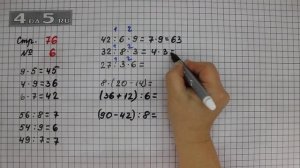 Стр. 76
№ 6
9·5=45
4·9=36
6·7=42
56:8=7
54:9=6
49:7=7
1 2
42:6·9=7·9=63
1 2
32:8·3=4·3=
1 2
27:3·6=
8·(20-14)=
(36+12):6=
(90-42):8=